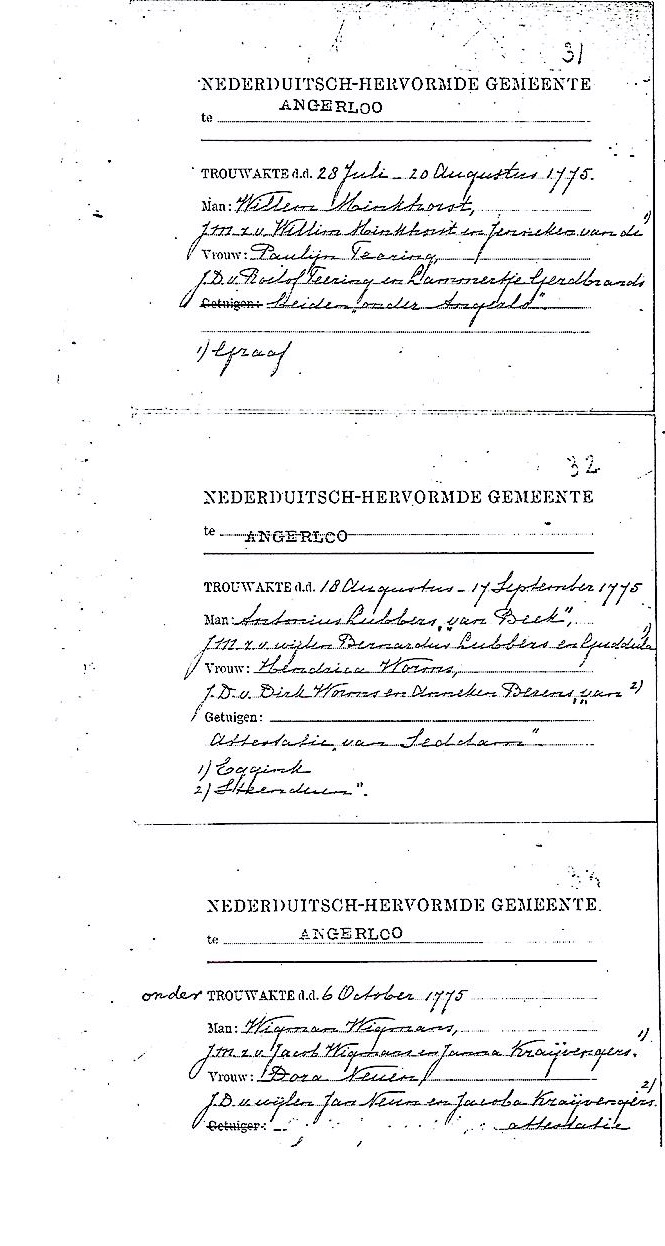 31
NEDERDUITSCH-HERVORMDE GEMEENTE
ANGERLOO
te
TROUWAKTE d.d. 28 Juli - 20 Augustus 1775.
Man: Willem Hinkhorst,
J.M. z.v. Willem Hinkhorst en Jenneken van de 1)
Vrouw: Paulijn Teering,
J.D. v. Roelof Teering en Lammertje Gerdbrands
Getuigen: Beiden "onder Angerlo".
1) Graaf
32
NEDERDUITSCH-HERVORMDE GEMEENTE
te ANGERLOO
TROUWAKTE d.d. 18 Augustus - 17 September 1775
Man: Antonius Lubbers, "van Beek",
J.M. z.v. wijlen Bernardus Lubbers en Guddula 1)
Vrouw: Hendrica Worms,
J.D. v. Dirk Worms en Anneken Besens, "van 2)
Getuigen:
Attestatie "van Seddam"
1) Eggink
2) Steenderen".
33
NEDERDUITSCH-HERVORMDE GEMEENTE.
te ANGERLOO
onder TROUWAKTE d.d. 6 October 1775
Man: Wigman Wigmans,
J.M. z.v. Jacob Wigmans en Janna Kraijvengers. 1)
Vrouw: Dora Neuen,
J.D. v. wijlen Jan Neuen en Jacoba Kraijvengers. 2)
Getuigen: attestatie